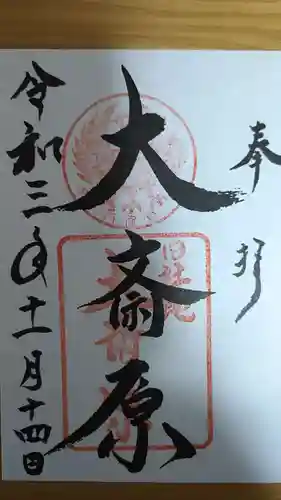 奉拝
大斎原
旧社地
令和三年十一月十四日